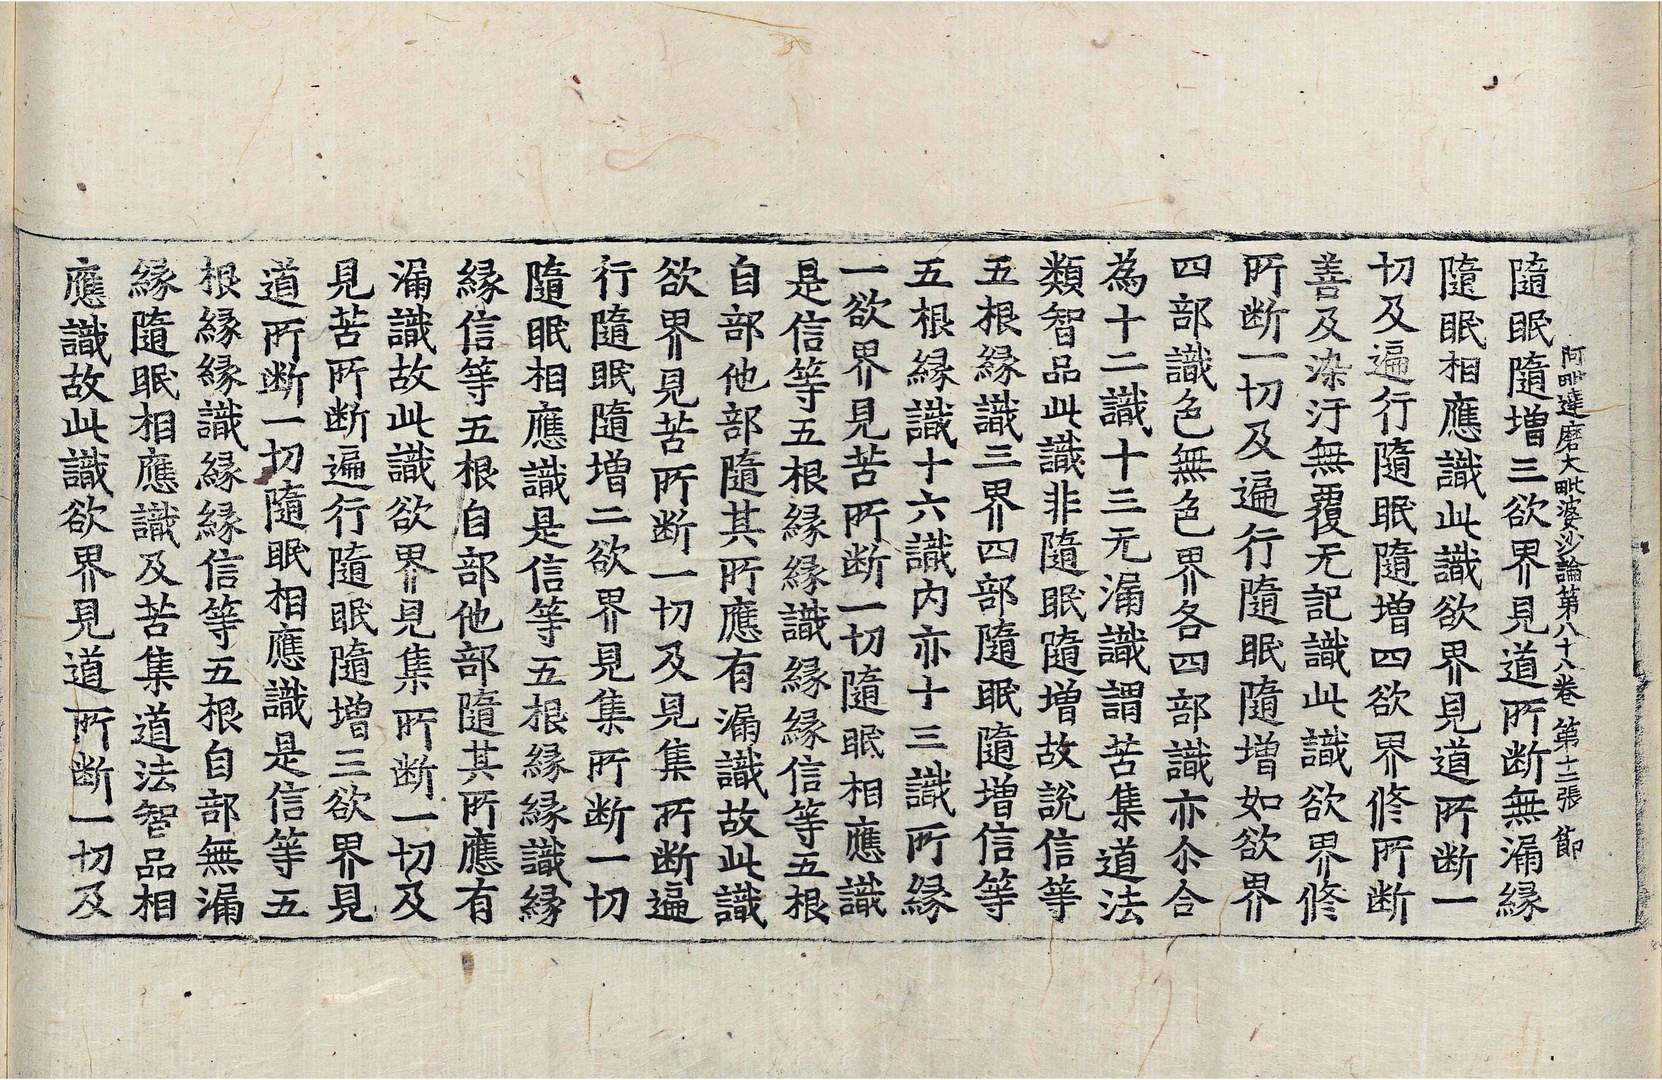 阿毗達磨大毗婆沙論第八十八卷 第十二張 節
隨眠隨增三欲界見道所断無漏縁
隨眠相應識此識欲界見道所断一
切及遍行隨眠隨增四欲界修所断
善及染汙無覆无記識此識欲界修
所断一切及遍行隨眠隨增如欲界
四部識色無色界各四部識亦尒合
為十二識十三无漏識謂苦集道法
類智品此識非隨眠隨增故說信等
五根縁識三界四部隨眠隨增信等
五根縁識十六識内亦十三識所縁
一欲界見苦所断一切隨眠相應識
是信等五根縁縁識縁縁信等五根
自部他部隨其所應有漏識故此識
欲界見苦所断一切及見集所断遍
行隨眠隨增二欲界見集所断一切
隨眠相應識是信等五根縁縁識縁
縁信等五根自部他部隨其所應有
漏識故此識欲界見集所断一切及
見苦所断遍行隨眠隨增三欲界見
道所断一切隨眠相應識是信等五
根縁縁識縁縁信等五根自部無漏
縁隨眠相應識及苦集道法智品相
應識故此識欲界見道所断一切及